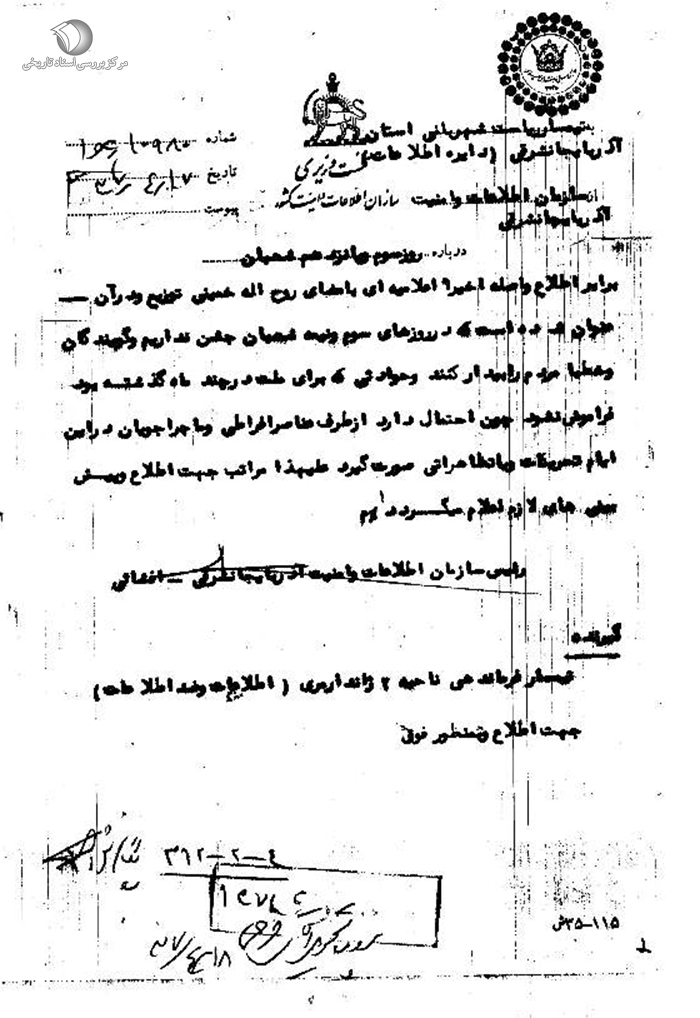 مرکز بررسی اسناد تاریخی
بتیمسار ریاست شهربانی استان
آذربایجانشرقی (دایره اطلاعات)
نخست وزیری
شماره
تاریخ
پیوست
از سازمان اطلاعات و امنیت
سازمان اطلاعات و امنیت کشور
آذربایجانشرقی
درباره روز سوم و پانزدهم شعبان
برابر اطلاع واصله اخیرا اعلامیه ای بامضای روح اله خمینی توزیع و در آن
عنوان شده است که در روزهای سوم و نیمه شعبان جشن نداریم و گویندگان
و خطبا مردم را بیدار کنند و حوادثی که برای ملت در چند ماه گذشته بود
فراموش نشود چون احتمال دارد از طرف عناصر افراطی و ماجراجویان در این
ایام تحریکات و یا تظاهراتی صورت گیرد علیهذا مراتب جهت اطلاع و پیش
بینی های لازم اعلام میگردد
رئیس سازمان اطلاعات و امنیت آذربایجانشرقی -
گیرنده
تیمسار فرماندهی ناحیه ۲ ژاندارمری (اطلاعات و ضد اطلاعات)
جهت اطلاع و بمنظور فوق
۳۶۲-۲-۴
۳۵-۱۱۵ش